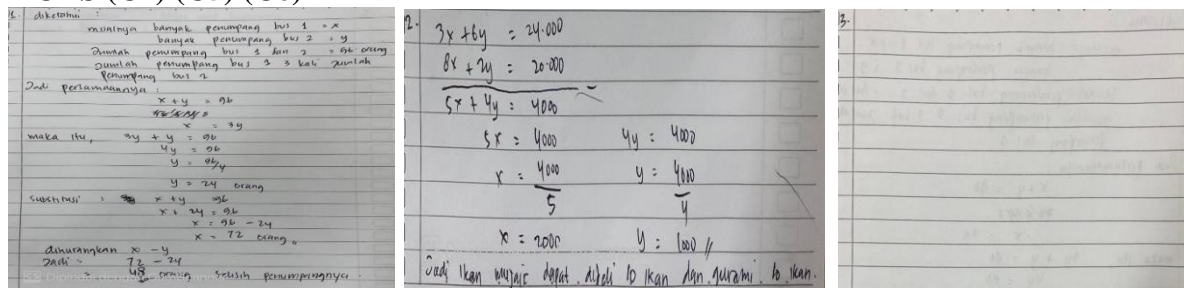 1. diketahui :
misalnya banyak penumpang bus 1 = x
banyak penumpang bus 2 = y
Jumlah penumpang bus 1 dan 2 = 96 orang
Jumlah penumpang bus 1 3 kali jumlah
penumpang bus 2
Jadi persamaannya :
x + y = 96
x = 3y
maka itu, 3y + y = 96
4y = 96
y = 96/4
y = 24 orang
substitusi : x + y = 96
x + 24 = 96
x = 96 - 24
x = 72 orang
dikurangkan x - y
Jadi = 72 - 24
= 48 orang selisih penumpangnya.
2. 3x + 6y = 24.000
8x + 2y = 20.000
5x + 4y = 4000
5x = 4000 4y = 4000
x = 4000/5 y = 4000/4
x = 2000 y = 1000 //
Jadi ikan mujair dapat dibeli 10 ikan dan gurami 10 ikan.
3.